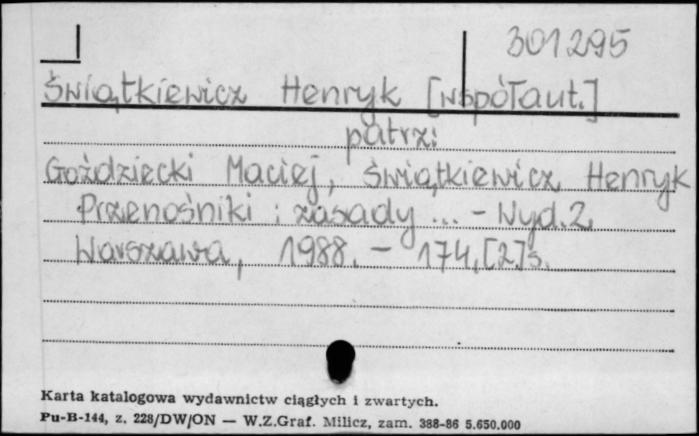 301295
Świątkiewicz Henryk [współaut.]
patrz:
Goździecki Maciej, Świątkiewicz Henryk
Przenośniki : zasady ... - Wyd.2.
Warszawa, 1988. - 174,[2]s.
Karta katalogowa wydawnictw ciągłych i zwartych.
Pu-B-144, z. 228/DW/ON — W.Z.Graf. Milicz, zam. 388-86 5.650.000